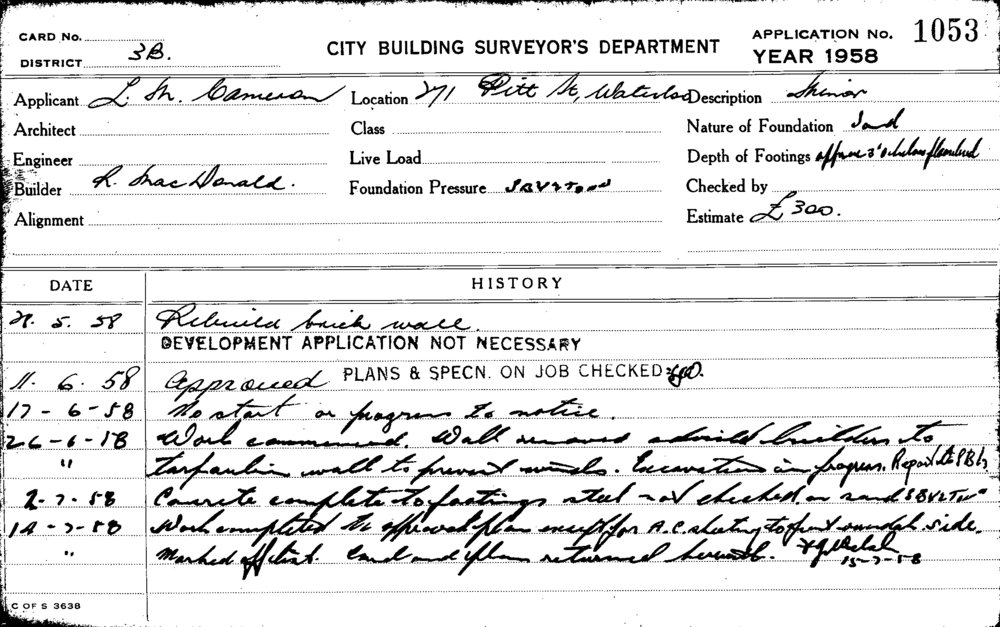 CARD No.
DISTRICT 3B.
CITY BUILDING SURVEYOR'S DEPARTMENT
APPLICATION No. 1053
YEAR 1958
Applicant L. M. Cameron Location 271 Pitt St, Waterloo Description Minor
Architect Class Nature of Foundation Sand
Engineer Live Load Depth of Footings approx 3'
Builder R. MacDonald. Foundation Pressure Checked by
Alignment Estimate £300.
DATE HISTORY
5. 58 Rebuild brick wall.
DEVELOPMENT APPLICATION NOT NECESSARY
11. 6. 58 Approved PLANS & SPECN. ON JOB CHECKED
17-6-58 No start or progress to notice.
26-6-58 Work commenced. Wall removed advised builders to
" tarpaulin wall to prevent winds. Excavation in progress.
2-7-58 Concrete complete to footings steel not checked on sand
14-7-58 Work completed to approved plan except for A.C. sheeting to front verandah side.
" Marked off list. Card and plan returned herewith.
15-7-58
C OF S 3638